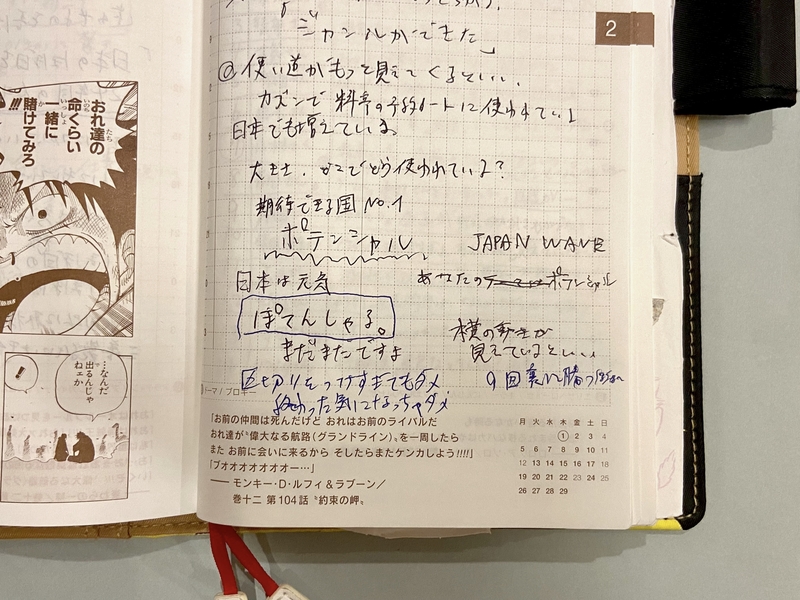 おれ達の
命くらい
一緒に
賭けてみろ
!!!
…なんだ
出るんじゃ
ねェか
!
2
ジャンルができた」
@使い道がもっと見えてくるといい、
カズンで 料亭の予約ノートに使われている
日本でも増えている。
どこでどう使われている?
期待できる国 No.1
ポテンシャル
JAPAN WAVE
日本は元気
あなたの ポテンシャル
ぽてんしゃる。
まだまだですよ
横の動きが
見えているといい
区切りをつけすぎてもダメ
終わった気になっちゃダメ
9回裏に勝つ
ノーマ / ブロギー
「お前の仲間は死んだけど おれはお前のライバルだ
おれ達が〝偉大なる航路(グランドライン)〟を一周したら
また お前に会いに来るから そしたらまたケンカしよう!!!!」
「ブオオオオオオオー…」
—— モンキー・D・ルフィ&ラブーン/
巻十二 第104話〝約束の岬〟
月 火 水 木 金 土 日
1 2 3 4
5 6 7 8 9 10 11
12 13 14 15 16 17 18
19 20 21 22 23 24 25
26 27 28 29